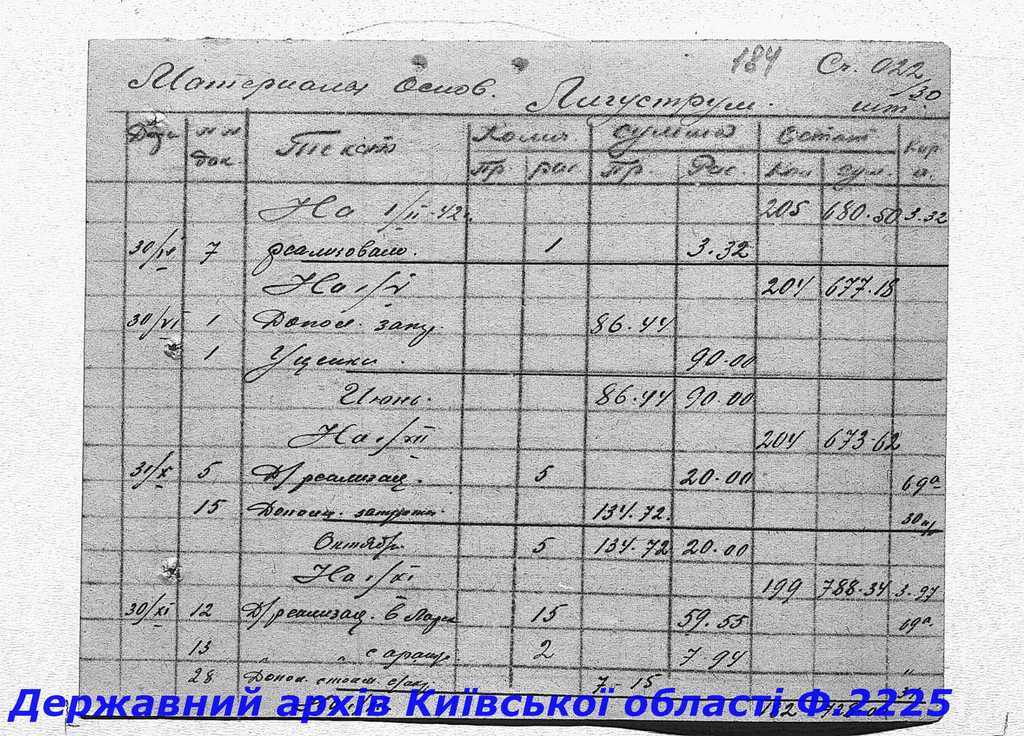 184 Сч. 022/30
Материалы основ. Лигуструм. шт.
Дата №№ док. Текст Колич. Сумма Остат Кар
Пр. рас. Пр. Рас. Кол сум.
На 1/II-42г. 205 680.50 3.32
30/IV 7 реализовано. 1 3.32
На 1/V 204 677.18
30/VI 1 Допол. затр. 86.44
1 Уценки. 90.00
Июнь. 86.44 90.00
На 1/VII 204 673-62
31/X 5 Д/реализац. 5 20.00 69а
15 Дополн. затраты 134.72.
Октябрь 5 134.72 20.00
На 1/XI 199 788.34 3.97
30/XI 12 Д/реализац. в 15 59.55 69а
13 2 7 94 "
28 Допол. 7-15
Державний архів Київської області.Ф.2225